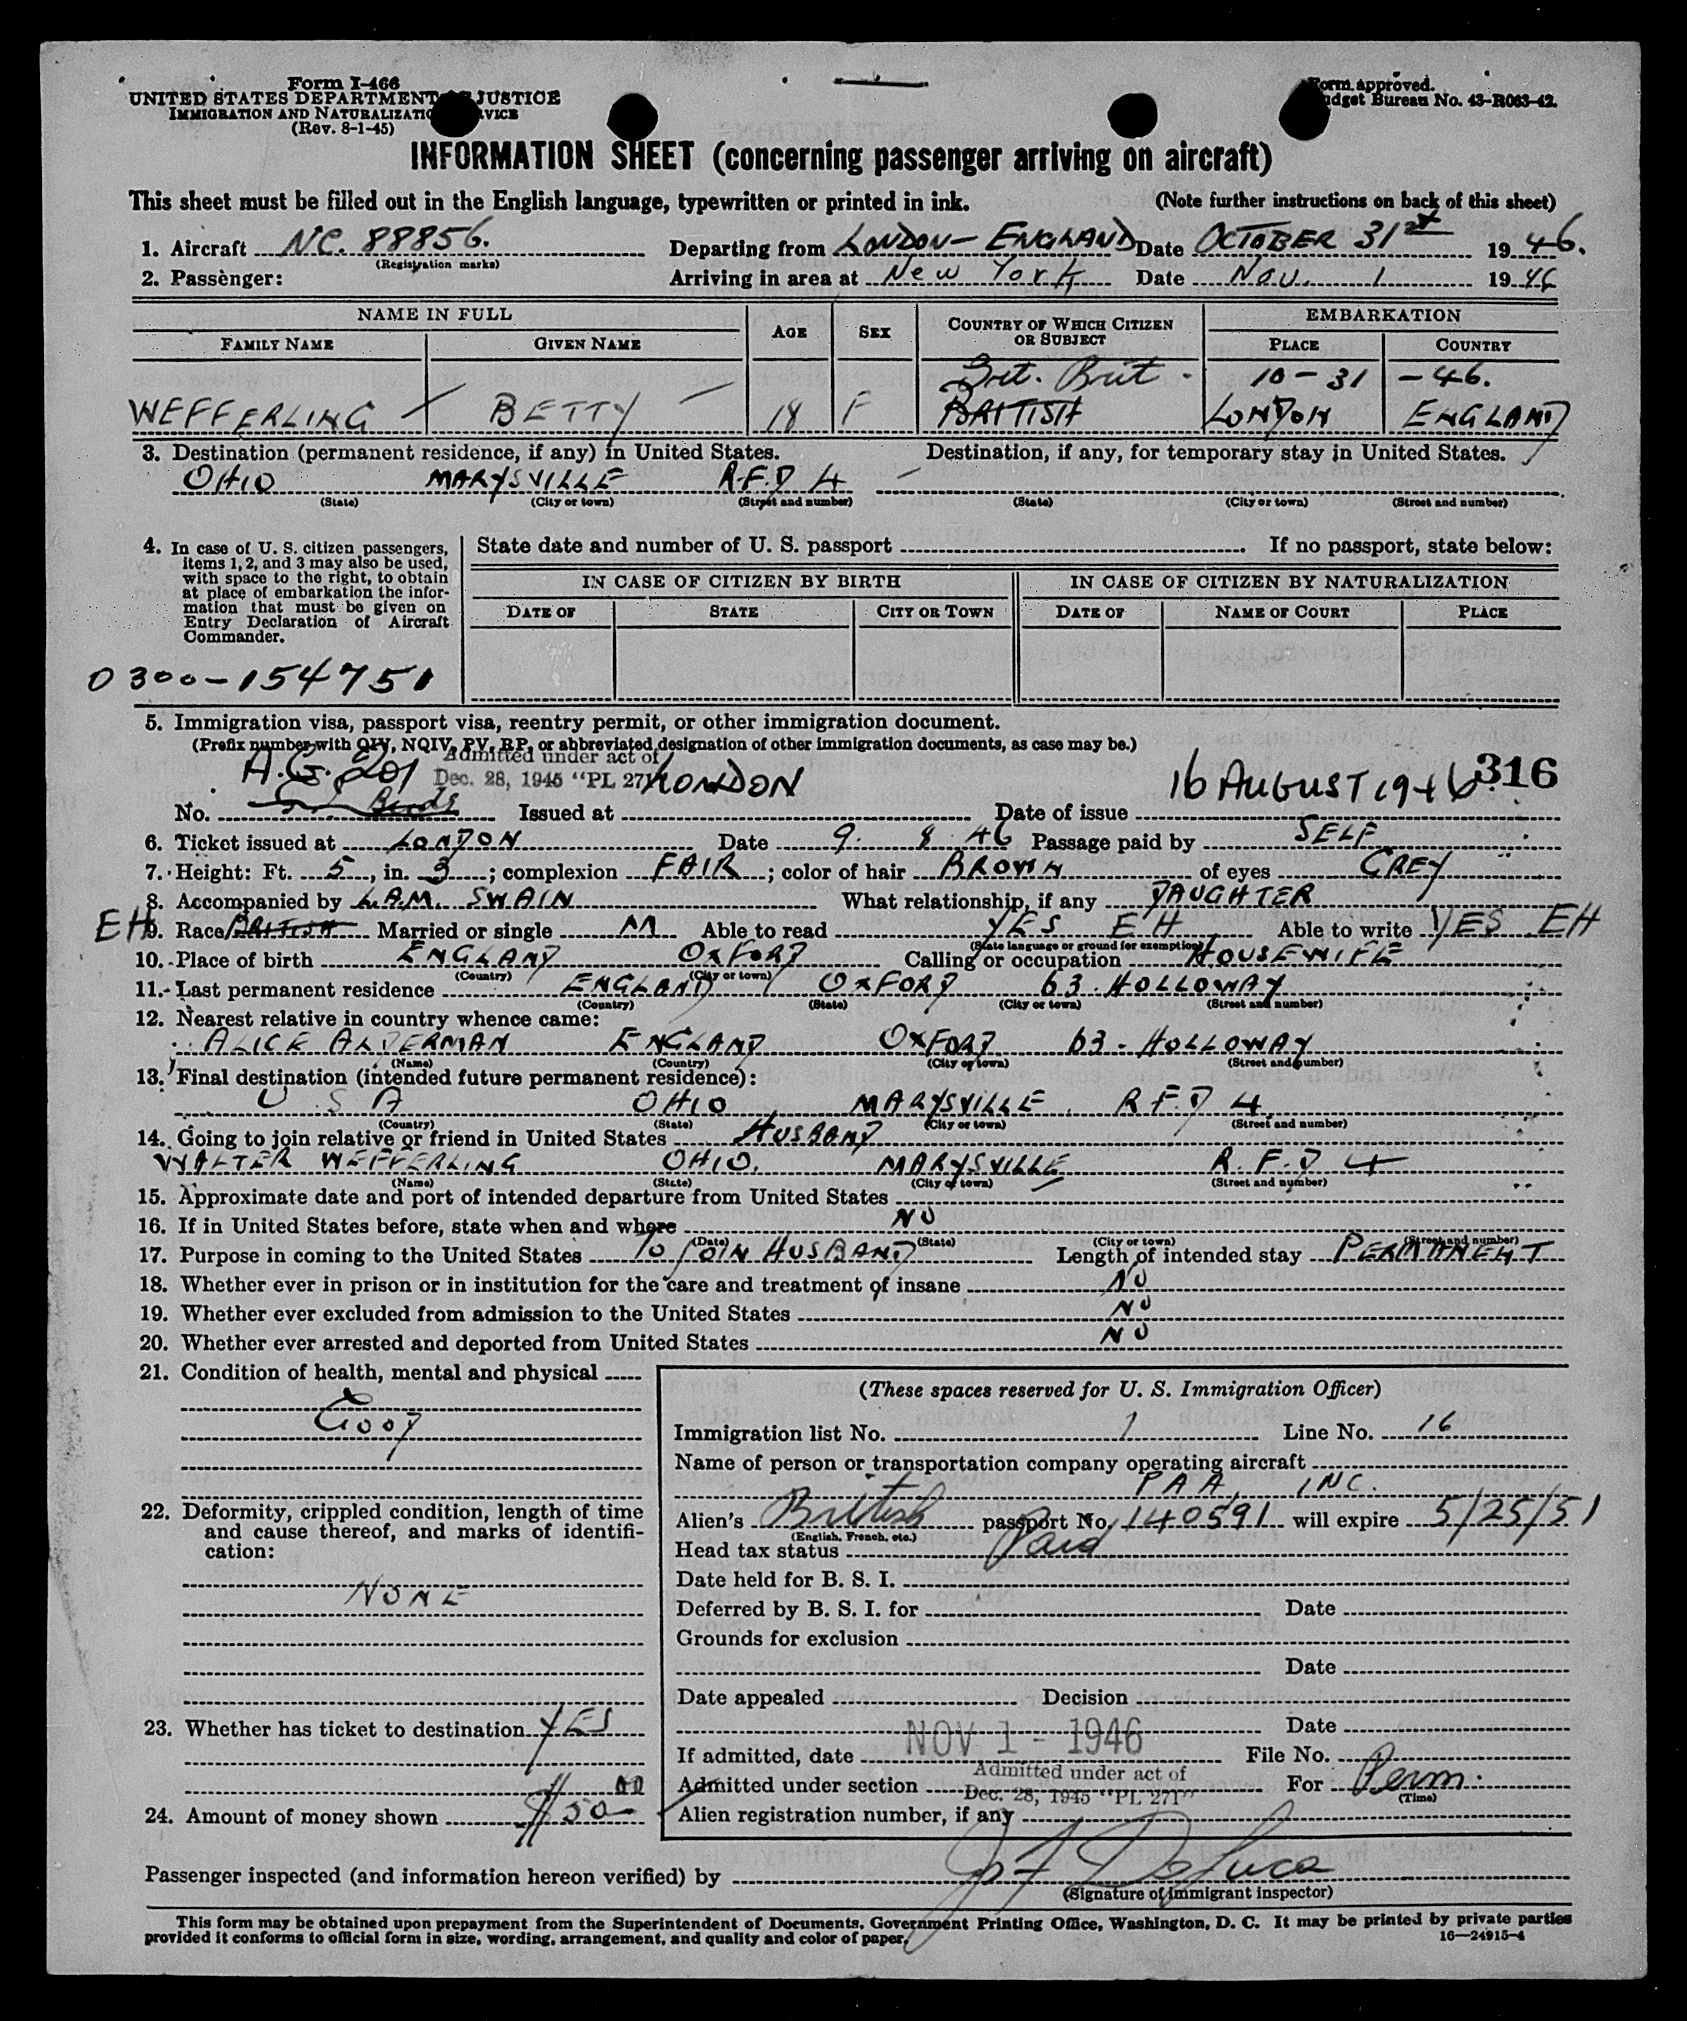 Form I-466
UNITED STATES DEPARTMENT OF JUSTICE
IMMIGRATION AND NATURALIZATION SERVICE
(Rev. 8-1-45)
Form approved.
Budget Bureau No. 43-R063-42.
INFORMATION SHEET (concerning passenger arriving on aircraft)
This sheet must be filled out in the English language, typewritten or printed in ink. (Note further instructions on back of this sheet)
1. Aircraft NC. 88856. Departing from LONDON – ENGLAND Date OCTOBER 31st 1946.
(Registration marks)
2. Passenger: Arriving in area at New York Date Nov. 1 1946
NAME IN FULL AGE SEX COUNTRY OF WHICH CITIZEN OR SUBJECT EMBARKATION
FAMILY NAME GIVEN NAME PLACE COUNTRY
Grt. Brit. 10-31-46.
WEFFERLING BETTY 18 F BRITISH LONDON ENGLAND
3. Destination (permanent residence, if any) in United States. Destination, if any, for temporary stay in United States.
OHIO MARYSVILLE R.F.D 4
(State) (City or town) (Street and number) (State) (City or town) (Street and number)
4. In case of U. S. citizen passengers, items 1, 2, and 3 may also be used, with space to the right, to obtain at place of embarkation the information that must be given on Entry Declaration of Aircraft Commander.
State date and number of U. S. passport . If no passport, state below:
IN CASE OF CITIZEN BY BIRTH IN CASE OF CITIZEN BY NATURALIZATION
DATE OF STATE CITY OR TOWN DATE OF NAME OF COURT PLACE
0300-154751
5. Immigration visa, passport visa, reentry permit, or other immigration document.
(Prefix number with QIV, NQIV, PV, RP, or abbreviated designation of other immigration documents, as case may be.)
Admitted under act of
Dec. 28, 1945 "PL 271
316
No. Issued at LONDON Date of issue 16 AUGUST 1946
6. Ticket issued at LONDON Date 9. 8 46 Passage paid by SELF
7. Height: Ft. 5, in. 3; complexion FAIR; color of hair BROWN of eyes GREY
8. Accompanied by L.A.M. SWAIN What relationship, if any DAUGHTER
EH 9. Race BRITISH Married or single M Able to read YES EH Able to write YES EH
(State language or ground for exemption)
10. Place of birth ENGLAND OXFORD Calling or occupation HOUSEWIFE
(Country) (City or town)
11. Last permanent residence ENGLAND OXFORD 63. HOLLOWAY
(Country) (State) (City or town) (Street and number)
12. Nearest relative in country whence came:
ALICE ALDERMAN ENGLAND OXFORD 63. HOLLOWAY
(Name) (Country) (City or town) (Street and number)
13. Final destination (intended future permanent residence):
U S A OHIO MARYSVILLE R.F.D 4
(Country) (State) (City or town) (Street and number)
14. Going to join relative or friend in United States HUSBAND
WALTER WEFFERLING OHIO. MARYSVILLE R.F.D 4
(Name) (State) (City or town) (Street and number)
15. Approximate date and port of intended departure from United States
16. If in United States before, state when and where NO
(Date) (State) (City or town) (Street and number)
17. Purpose in coming to the United States TO JOIN HUSBAND Length of intended stay PERMANENT
18. Whether ever in prison or in institution for the care and treatment of insane NO
19. Whether ever excluded from admission to the United States NO
20. Whether ever arrested and deported from United States NO
21. Condition of health, mental and physical
GOOD
22. Deformity, crippled condition, length of time and cause thereof, and marks of identification:
NONE
23. Whether has ticket to destination YES
24. Amount of money shown $50 00
(These spaces reserved for U. S. Immigration Officer)
Immigration list No. 1 Line No. 16
Name of person or transportation company operating aircraft
PAA, INC.
Alien's British passport No. 140591 will expire 5/25/51
(English, French, etc.)
Head tax status Paid
Date held for B. S. I.
Deferred by B. S. I. for Date
Grounds for exclusion
Date
Date appealed Decision
Date
If admitted, date NOV 1 - 1946 File No.
Admitted under section Admitted under act of Dec. 28, 1945 "PL 271" For Perm.
(Time)
Alien registration number, if any
Passenger inspected (and information hereon verified) by
(Signature of immigrant inspector)
This form may be obtained upon prepayment from the Superintendent of Documents, Government Printing Office, Washington, D. C. It may be printed by private parties
provided it conforms to official form in size, wording, arrangement, and quality and color of paper.
16—24915-4